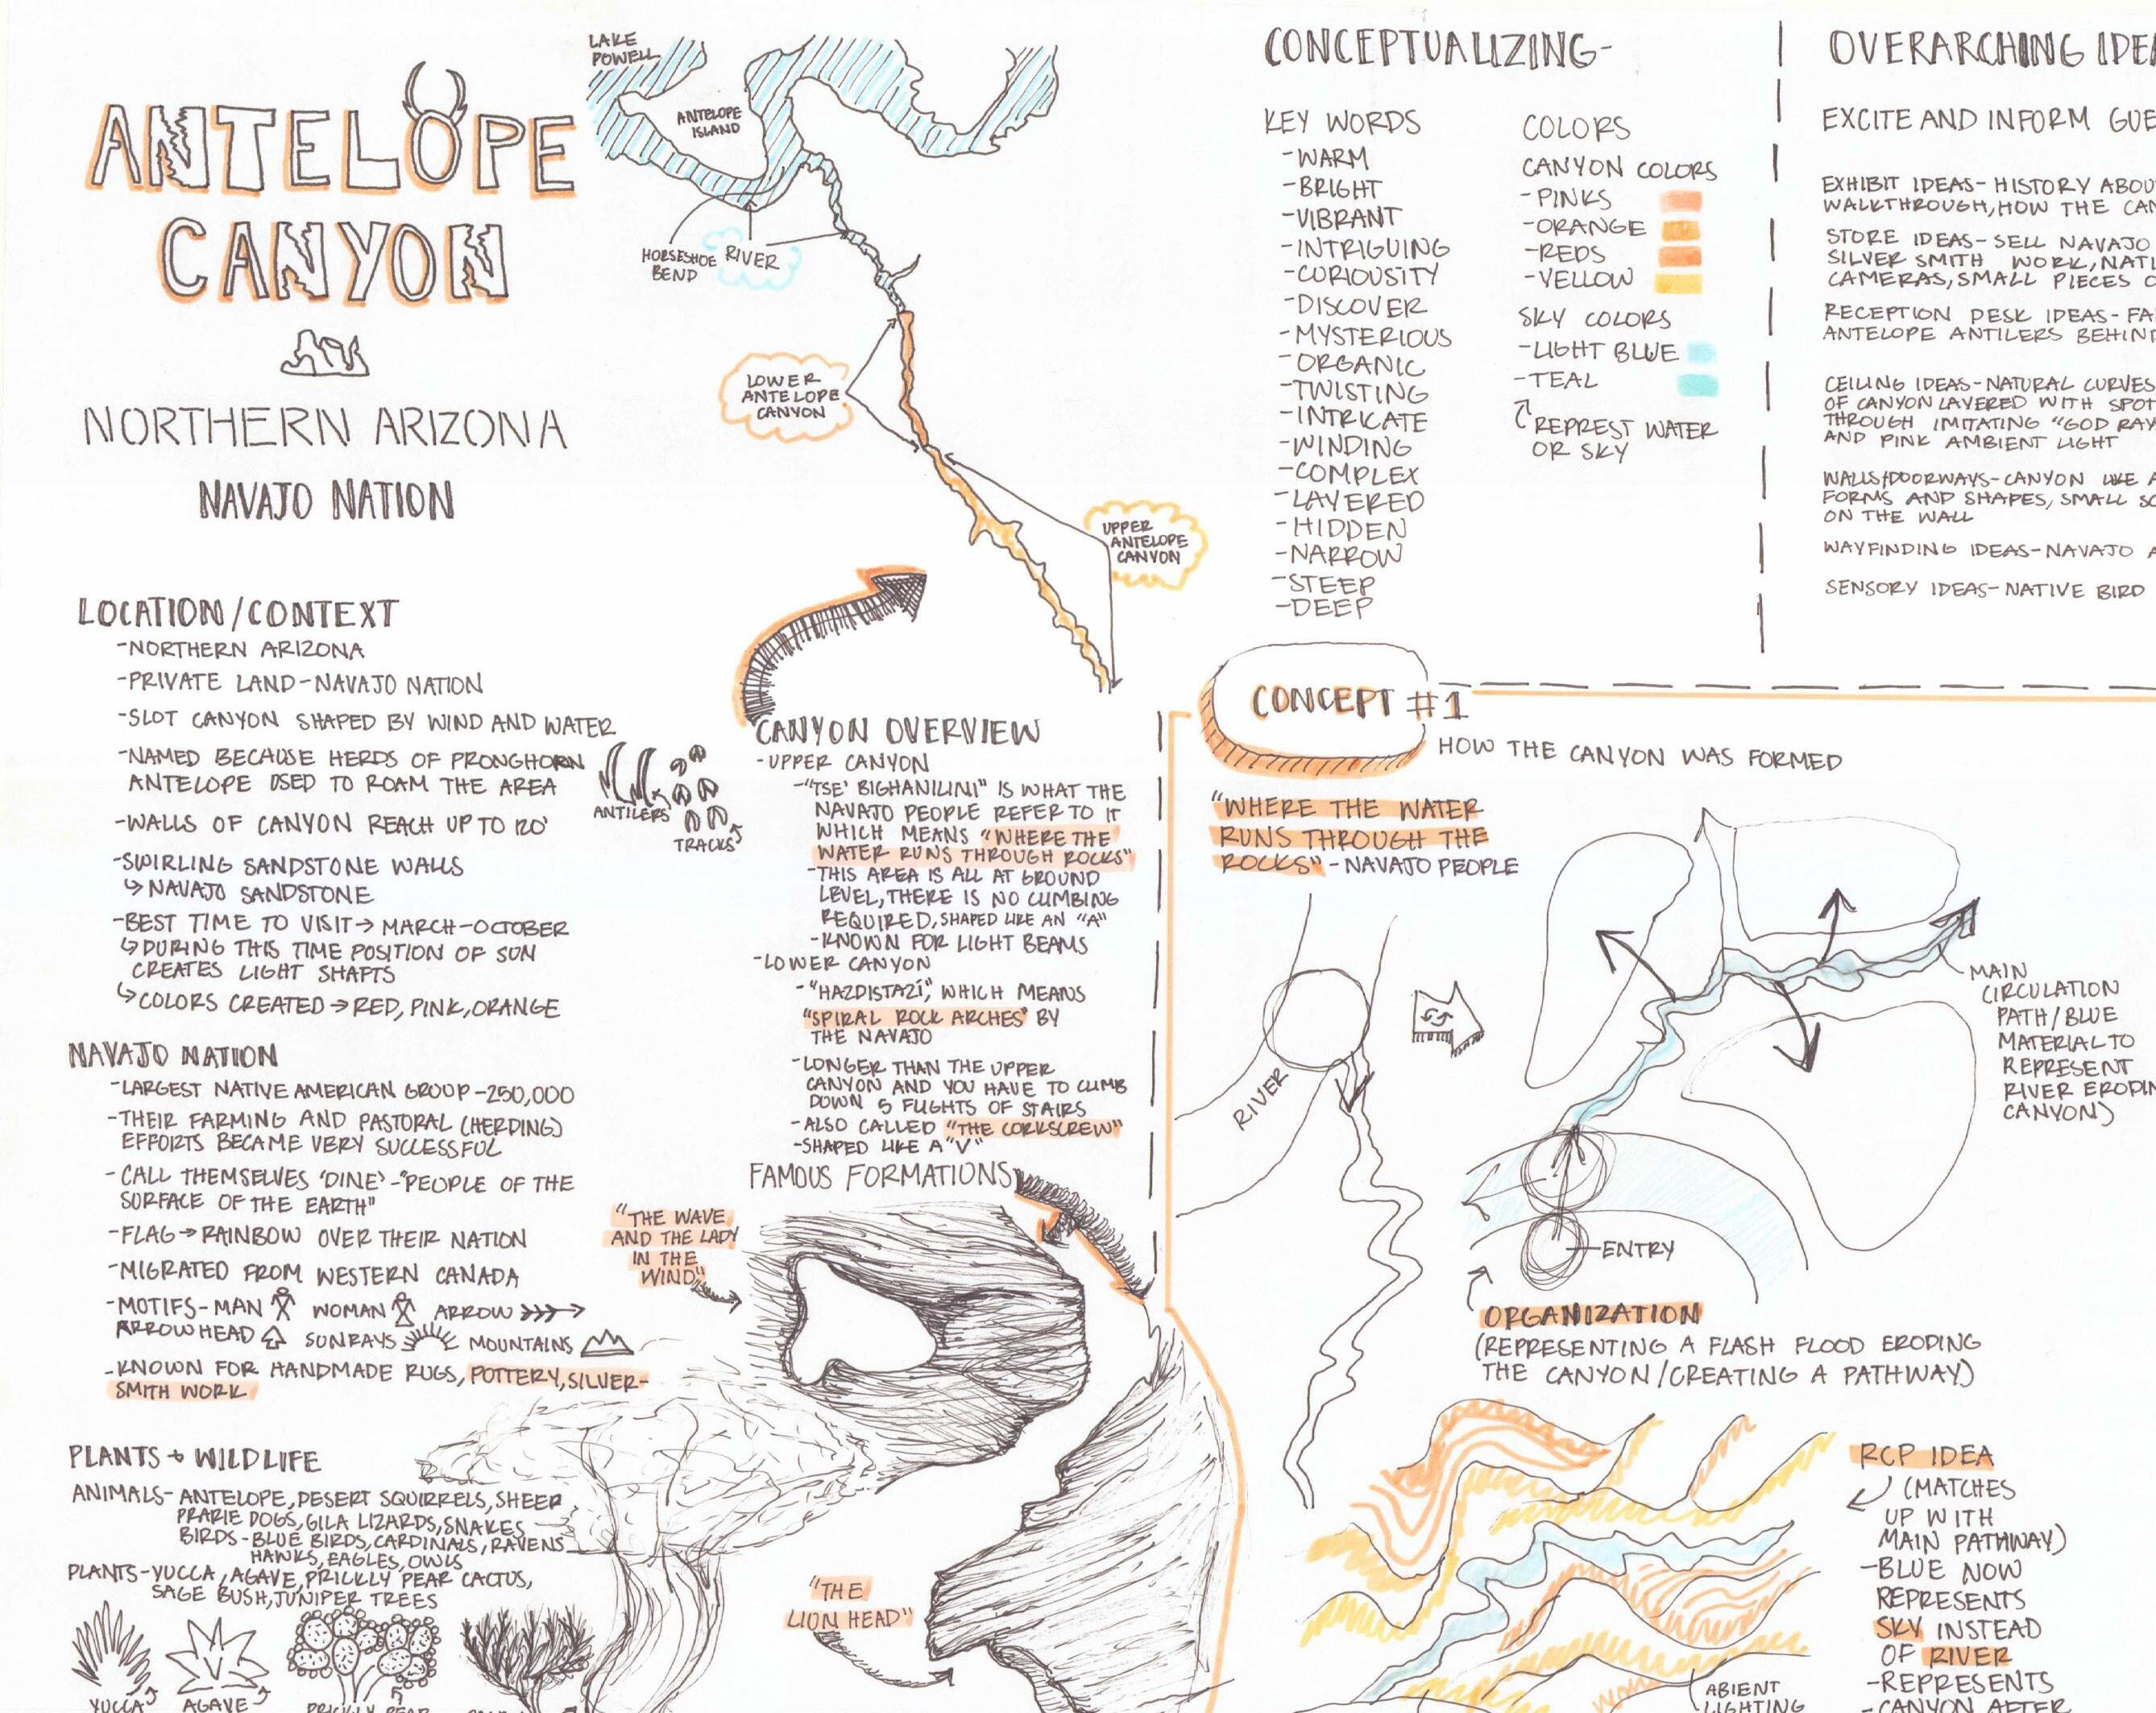 ANTELOPE
CANYON
NORTHERN ARIZONA
NAVAJO NATION
LAKE
POWELL
ANTELOPE
ISLAND
HORSESHOE
BEND
RIVER
LOWER
ANTELOPE
CANYON
UPPER
ANTELOPE
CANYON
LOCATION/CONTEXT
-NORTHERN ARIZONA
-PRIVATE LAND-NAVAJO NATION
-SLOT CANYON SHAPED BY WIND AND WATER
-NAMED BECAUSE HERDS OF PRONGHORN
ANTELOPE USED TO ROAM THE AREA
ANTILERS
TRACKS
-WALLS OF CANYON REACH UP TO 120'
-SWIRLING SANDSTONE WALLS
↳ NAVAJO SANDSTONE
-BEST TIME TO VISIT→ MARCH-OCTOBER
↳DURING THIS TIME POSITION OF SUN
CREATES LIGHT SHAFTS
↳COLORS CREATED→RED, PINK, ORANGE
NAVAJO NATION
-LARGEST NATIVE AMERICAN GROUP-250,000
-THEIR FARMING AND PASTORAL (HERDING)
EFFORTS BECAME VERY SUCCESSFUL
-CALL THEMSELVES 'DINE'-"PEOPLE OF THE
SURFACE OF THE EARTH"
-FLAG→RAINBOW OVER THEIR NATION
-MIGRATED FROM WESTERN CANADA
-MOTIFS-MAN WOMAN ARROW
ARROWHEAD SUNRAYS MOUNTAINS
-KNOWN FOR HANDMADE RUGS, POTTERY, SILVER-
SMITH WORK
PLANTS + WILDLIFE
ANIMALS-ANTELOPE, DESERT SQUIRRELS, SHEEP
PRARIE DOGS, GILA LIZARDS, SNAKES
BIRDS-BLUE BIRDS, CARDINALS, RAVENS
HAWKS, EAGLES, OWLS
PLANTS-YUCCA, AGAVE, PRICKLY PEAR CACTUS,
SAGE BUSH, JUNIPER TREES
YUCCA
AGAVE
PRICKLY PEAR
CANYON OVERVIEW
-UPPER CANYON
-"TSE' BIGHANILINI" IS WHAT THE
NAVAJO PEOPLE REFER TO IT
WHICH MEANS "WHERE THE
WATER RUNS THROUGH ROCKS"
-THIS AREA IS ALL AT GROUND
LEVEL, THERE IS NO CLIMBING
REQUIRED, SHAPED LIKE AN "A"
-KNOWN FOR LIGHT BEAMS
-LOWER CANYON
-"HAZDISTAZÍ", WHICH MEANS
"SPIRAL ROCK ARCHES" BY
THE NAVAJO
-LONGER THAN THE UPPER
CANYON AND YOU HAVE TO CLIMB
DOWN 5 FLIGHTS OF STAIRS
-ALSO CALLED "THE CORKSCREW"
-SHAPED LIKE A "V"
FAMOUS FORMATIONS
"THE WAVE
AND THE LADY
IN THE
WIND"
"THE
LION HEAD"
CONCEPTUALIZING-
KEY WORDS
-WARM
-BRIGHT
-VIBRANT
-INTRIGUING
-CURIOUSITY
-DISCOVER
-MYSTERIOUS
-ORGANIC
-TWISTING
-INTRICATE
-WINDING
-COMPLEX
-LAYERED
-HIDDEN
-NARROW
-STEEP
-DEEP
COLORS
CANYON COLORS
-PINKS
-ORANGE
-REDS
-YELLOW
SKY COLORS
-LIGHT BLUE
-TEAL
REPREST WATER
OR SKY
OVERARCHING IDEA
EXCITE AND INFORM GUE
EXHIBIT IDEAS-HISTORY ABOU
WALKTHROUGH, HOW THE CAN
STORE IDEAS-SELL NAVAJO
SILVER SMITH WORK, NATI
CAMERAS, SMALL PIECES O
RECEPTION DESK IDEAS-FA
ANTELOPE ANTILERS BEHIND
CEILING IDEAS-NATURAL CURVES
OF CANYON LAYERED WITH SPOT
THROUGH IMITATING "GOD RAY
AND PINK AMBIENT LIGHT
WALLS/DOORWAYS-CANYON LIKE A
FORMS AND SHAPES, SMALL SC
ON THE WALL
WAYFINDING IDEAS-NAVAJO A
SENSORY IDEAS-NATIVE BIRD
CONCEPT #1
HOW THE CANYON WAS FORMED
"WHERE THE WATER
RUNS THROUGH THE
ROCKS"-NAVAJO PEOPLE
RIVER
MAIN
CIRCULATION
PATH/BLUE
MATERIAL TO
REPRESENT
RIVER ERODIN
CANYON)
ENTRY
ORGANIZATION
(REPRESENTING A FLASH FLOOD ERODING
THE CANYON/CREATING A PATHWAY)
RCP IDEA
(MATCHES
UP WITH
MAIN PATHWAY)
-BLUE NOW
REPRESENTS
SKY INSTEAD
OF RIVER
-REPRESENTS
-CANYON AFTER
ABIENT
LIGHTING